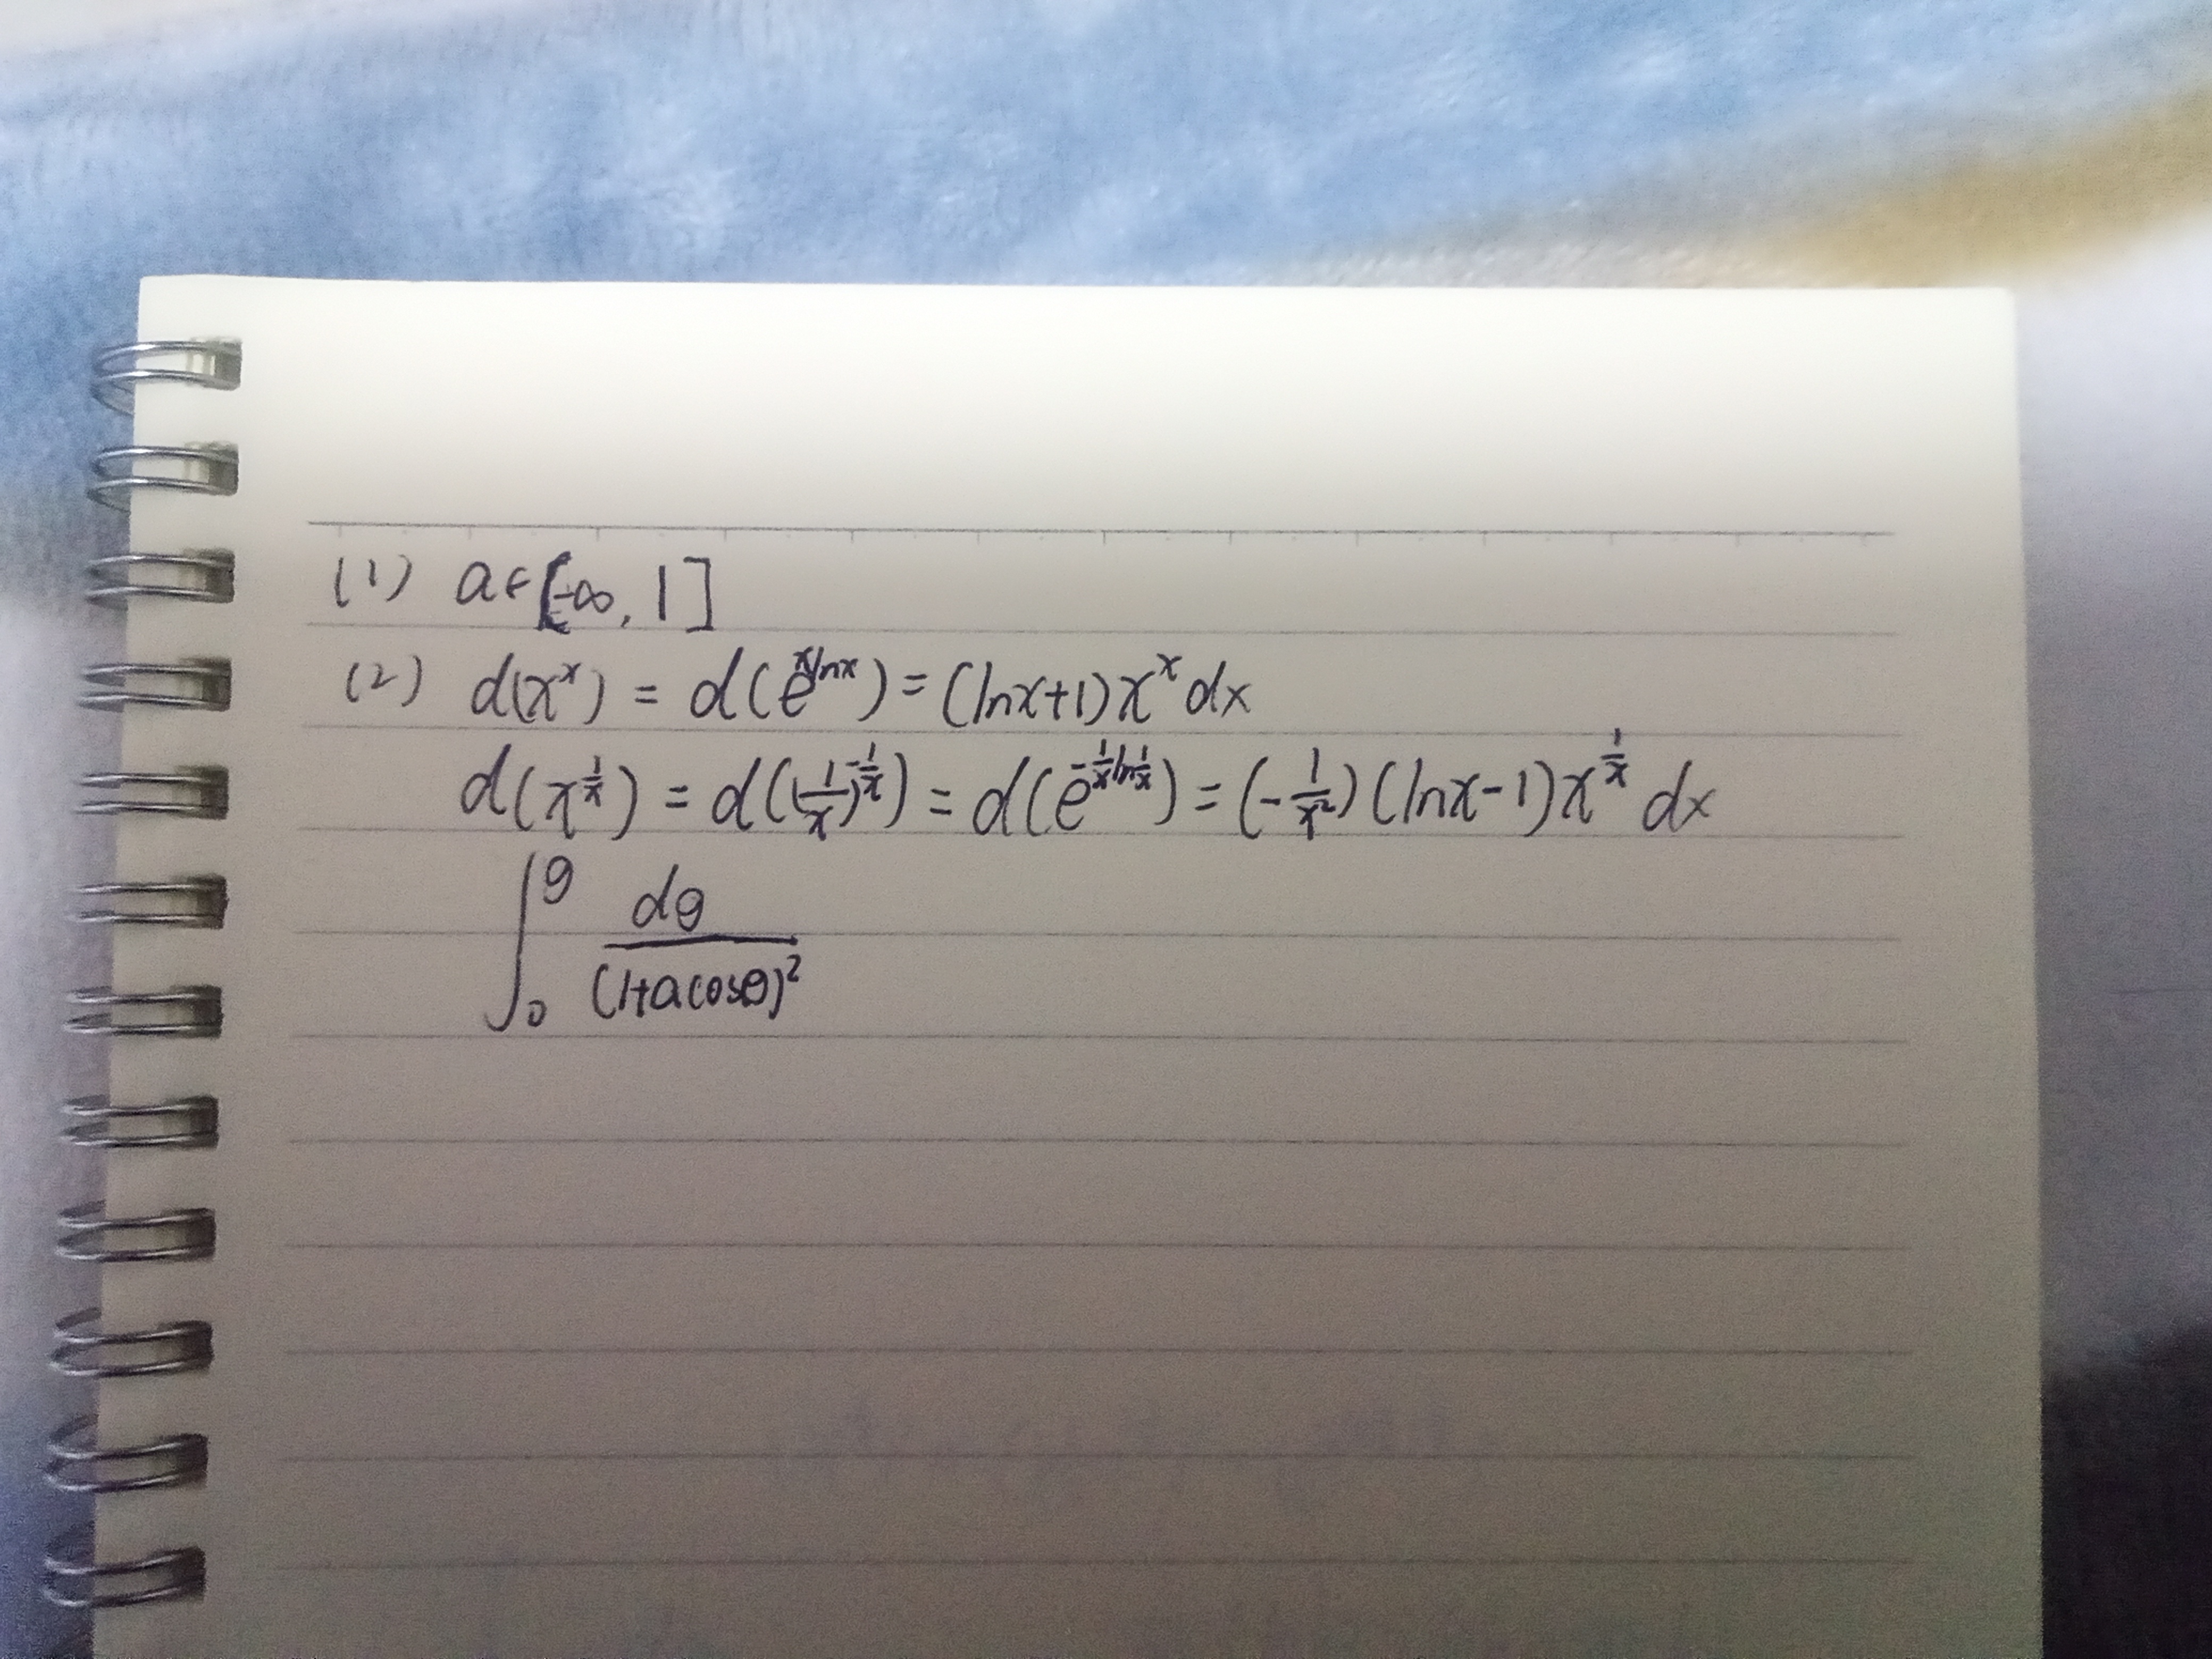 (1) a∈[-∞, 1]
(2) d(x^x) = d(e^{xlnx}) = (lnx+1)x^x dx
d(x^{\frac{1}{x}}) = d((\frac{1}{x})^{-\frac{1}{x}}) = d(e^{-\frac{1}{x}ln\frac{1}{x}}) = (-\frac{1}{x^2})(lnx-1)x^{\frac{1}{x}} dx
\int_0^θ \frac{dθ}{(1+acosθ)^2}